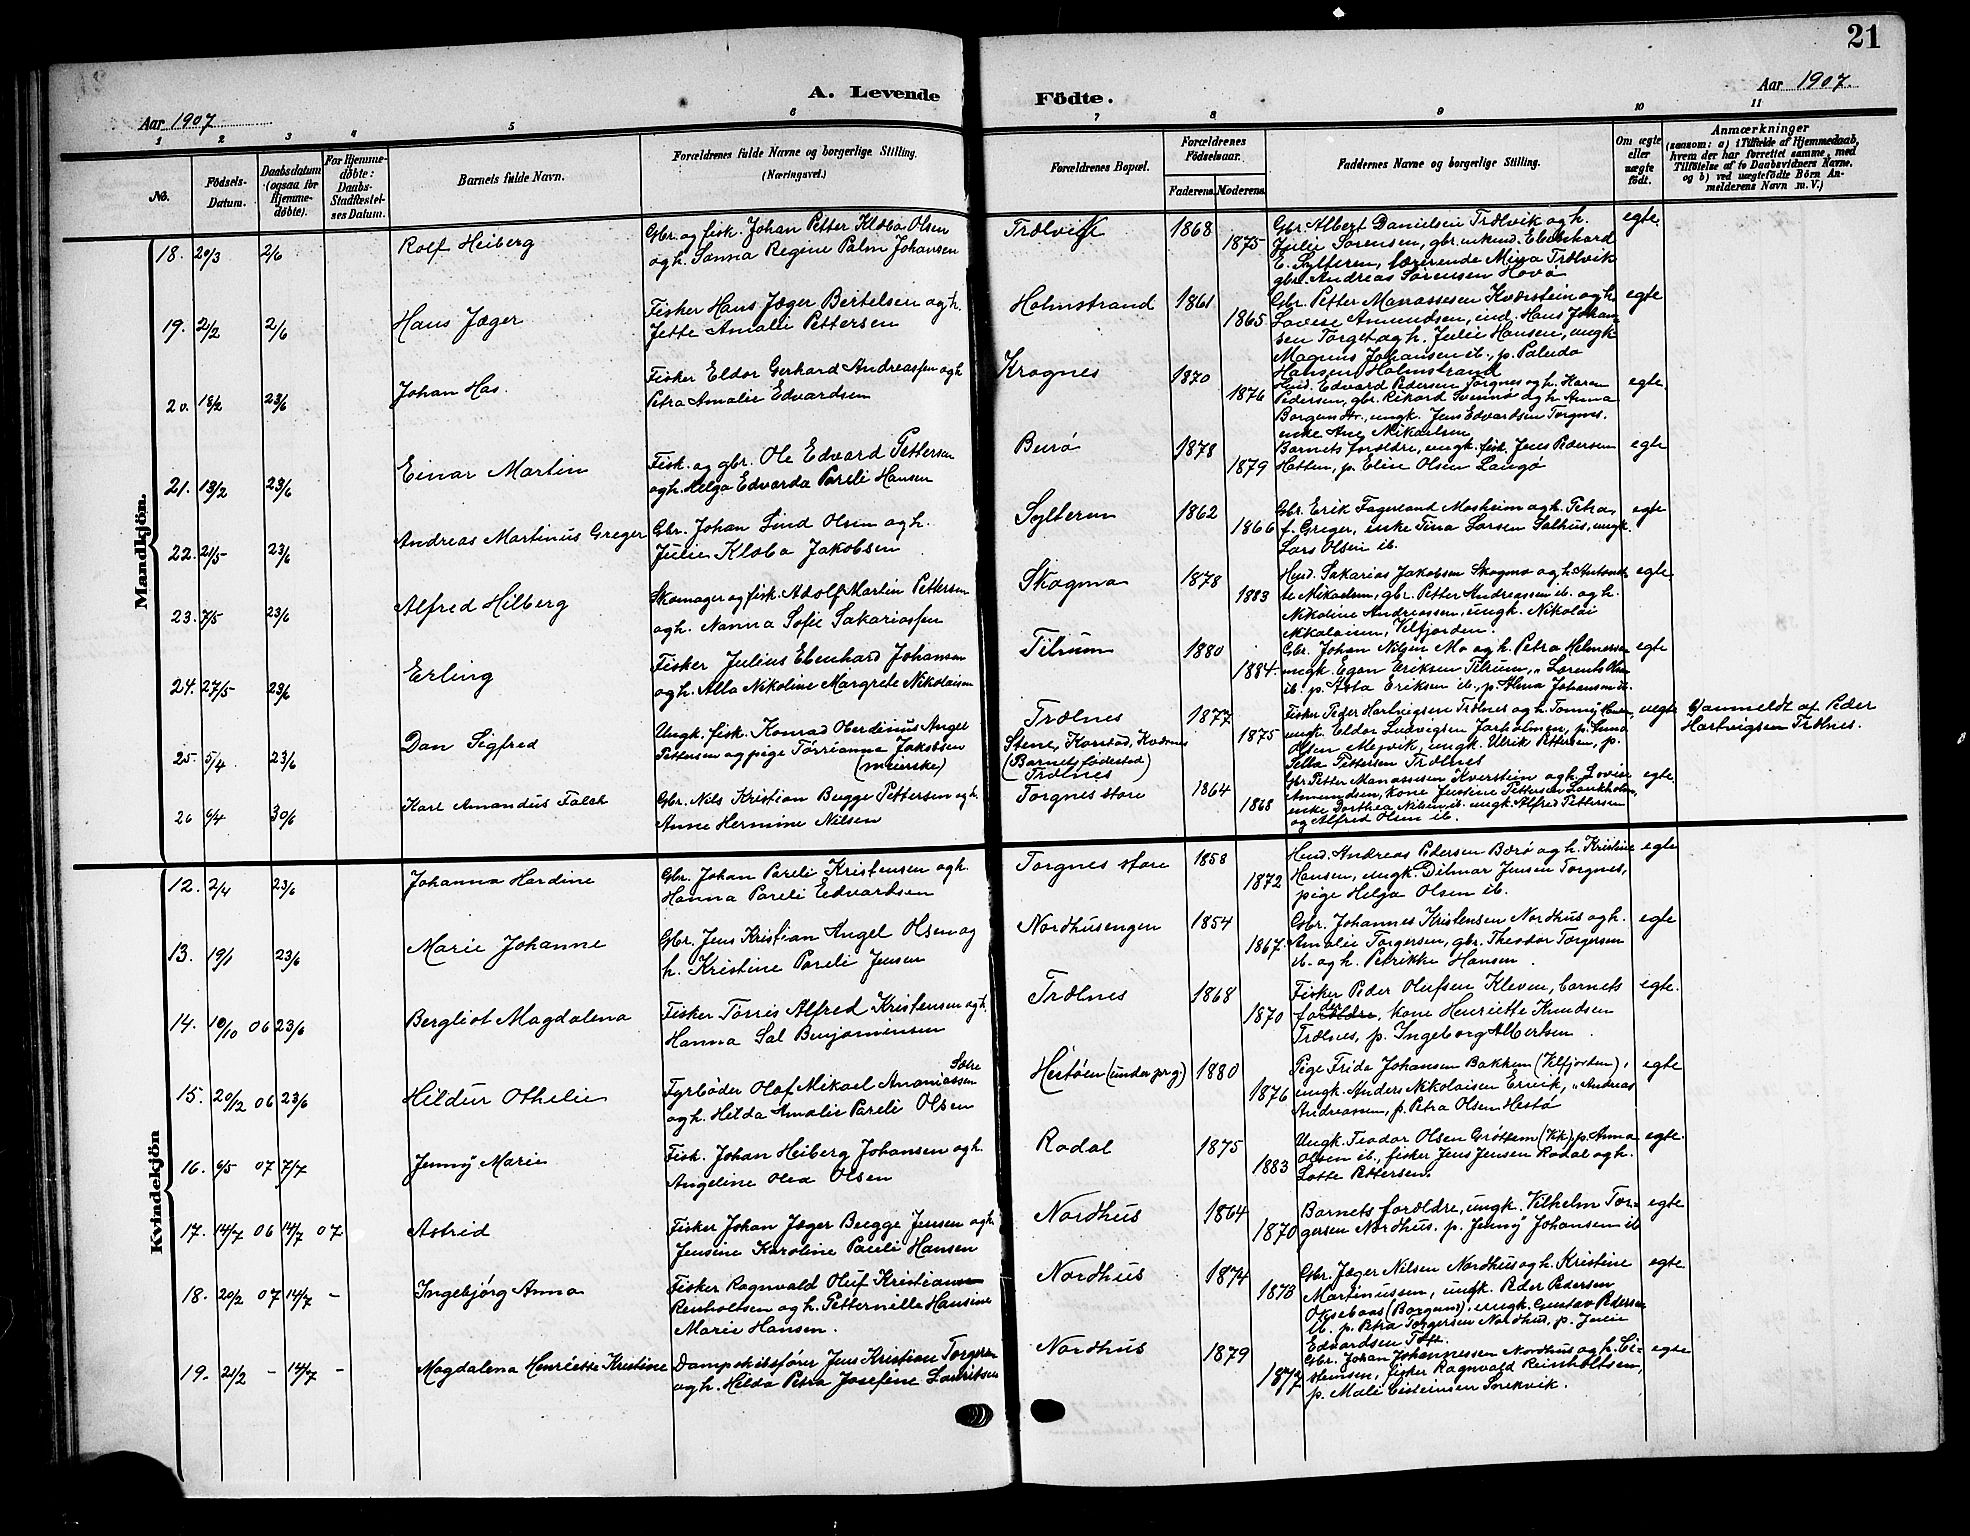 21
A. Levende Födte.
Aar 1907
Aar 1907.
1 2 3 4 5 6 7 8 9 10 11
No.
Födsels-
Datum.
Daabsdatum
(ogsaa for
Hjemme-
døbte).
For Hjemme-
døbte:
Daabs-
Stadfæstel-
ses Datum.
Barnets fulde Navn.
Forældrenes fulde Navne og borgerlige Stilling.
(Næringsvei.)
Forældrenes Bopæl.
Forældrenes
Födselsaar.
Faderens. Moderens.
Faddernes Navne og borgerlige Stilling.
Om ægte
eller
uægte
födt.
Anmærkninger
(saasom: a) i Tilfælde af Hjemmedaab,
hvem der har forrettet samme, med
Tilföielse af to Daabsvidners Navne,
og b) ved uægtefödte Börn An-
melderens Navn m. V.)
Mandkjön.
18. 20/3 2/6 Rolf Heiberg
Gbr. og fisk. Johan Petter Klæbo Olsen
og h. Sanna Regine Palm Johansen
Trælvik 1868 1875
Gbr. Albert Danielsen Trælvik og h.
Julie Sørensen, gbr. enkem. Ebberhard
E. Sylteren, lærerinde Mina Trælvik
gbr. Andreas Sørensen Hovø
egte.
19. 2/2 2/6 Hans Jæger
Fisker Hans Jæger Bertelsen og h.
Jette Amalie Pettersen
Holmstrand 1861 1865
Gbr. Petter Manassesen Kværstein og h.
Lovise Amundsen, ind. Hans Johan-
sen Torget og h. Julie Hansen, ungk.
Magnus Johansen ib., p. Paluda
Hansen Holmstrand
egte
20. 18/2 23/6 Johan Has.
Fisker Eldor Gerhard Andreassen og h
Petra Amalie Edvardsen
Krognes 1870 1876
Hmd. Edvard Pedersen Torgnes og h. Karen
Pedersen, gbr. Rikard Svennø og h. Anna
Borgen, ungk. Jens Edvardsen Torgnes.
enke Ane Mikaelsen
egte.
21. 13/2 23/6 Einar Martin
Fisk. og gbr. Ole Edvard Pettersen
og h. Helga Edvarda Pareli Hansen
Burø 1878 1879
Barnets forældre, ungk. fisk. Jens Pedersen
Hatten, p. Elise Olsen Langø
egte
22. 21/5 23/6 Andreas Martinus Greger
Gbr. Johan Lind Olsen og h.
Julie Klæbo Jakobsen
Sylteren 1862 1866
Gbr. Erik Fagerland Mosheim og h. Petra
f. Greger, enke Tina Larsen Salhus, ungk.
Lars Olsen ib.
egte
23. 7/5 23/6 Alfred Hilberg
Skomager og fisk. Adolf Martin Pettersen
og h. Nanna Sofie Sakariassen
Skogmo 1878 1883
Hmd. Sakarias Jakobsen Skogmo og h. Antonet-
te Mikaelsen, gbr. Petter Andreassen ib. og h.
Nikoline Andreassen, ungk. Nikolai
Nikolaisen, Velfjorden.
egte.
24. 27/5 23/6 Erling
Fisker Julius Ebenhard Johansen
og h. Alla Nikoline Margrete Nikolaisen
Tilrum 1880 1884.
Gbr. Johan Nilsen Mo og h. Petra Helmersen
ungk. Egon Eriksen Tilrum, „ Lorents Olsen
ib. p. Asta Eriksen ib., p. Alma Johansen ib.
egte
25. 5/4 23/6 Dan Sigfred
Ungk. fisk. Konrad Oberdinus Angel
Pettersen og pige Tørrianna Jakobsen
(meierske)
Trælnes
Stene, Korstad, Kvænes
(Barnets fødested)
Trælnes
1877 1875
Fisker Peder Hartvigsen Trælnes og h. Tommy
ungk. Eldor Ludvigsen Jarholmen, p.
Olsen Mejvik, ungk. Ulrik Pettersen, p.
Pella Pettersen Trælnes
uegte
Janmeldt af Peder
Hartvigsen Trælnes.
26 6/4 30/6 Karl Amandus Falch
Gbr. Nils Kristian Bugge Pettersen og h.
Anne Hermine Nilsen
Torgnes store 1864 1868
Gbr. Petter Manassesen Kverstein og h. Lovise
Amundsen, kone Jensine Pettersen Lankholm,
enke Dorthea Nilsen ib. ungk. Alfred Pettersen
og Alfred Olsen ib.
egte.
Kvindekjön
12. 2/4 23/6 Johanna Hardine
Gbr. Johan Pareli Kristensen og h.
Hanna Pareli Edvardsen
Torgnes store 1858 1872
Hmd. Andreas Pedersen Bærø og h. Kristine
Hansen, ungk. Dilmar Jensen Torgnes,
pige Helga Olsen ib.
egte
13. 19/1 23/6 Marie Johanne
Gbr. Jens Kristian Angel Olsen og
h. Kristine Pareli Jensen
Nordhusengen 1854 1867
Gbr. Johannes Kristensen Nordhus og h.
Amalie Torgersen, gbr. Theodor Torgersen
ib. og h. Petrikke Hansen
egte
14. 10/10 06 23/6 Bergliot Magdalena
Fisker Tørris Alfred Kristensen og h.
Hanna Sal Benjaminsen
Trælnes 1868 1870
Fisker Peder Olufsen Kleven, barnets
forældre, Kone Henriette Knudsen
Trælnes, p. Ingeborg Albertsen
egte.
15. 20/12 06 23/6 Hildur Othelie
Sætre
Fyrbøder Olaf Mikael Ananiassen
og h. Hilda Amalie Pareli Olsen
Hestøen (under prg.) 1880 1876
Pige Frida Johansen Bakken (Velfjorden),
ungk. Anders Nikolaisen Ervik, „ Andreas
Andreassen, p. Petra Olsen Hestø
egte
16. 6/5 07 7/7 Jenny Marie
Fisk. Johan Heiberg Johansen og h.
Angeline Olea Olsen
Rodal 1875 1883
Ungk. Teodor Olsen Grøttem (Vik), p. Anna
Olsen ib., fisker Jens Jensen Rodal og h.
Lotte Pettersen.
egte.
17. 14/7 06 14/7 07 Astrid
Fisker Johan Jæger Bugge Jensen og h.
Jensine Karoline Pareli Hansen
Nordhus 1864 1870
Barnets forældre, ungk. Vilhelm Tor-
gersen Nordhus. p. Jenny Johansen ib
egte
18. 20/2 07 14/7 - Ingebjørg Anna
Fisker Ragnvald Oluf Kristian
Reinholtsen og h. Petternille Hansine
Marie Hansen.
Nordhus 1874 1873
Gbr. Jæger Nilsen Nordhus og h. Kristine
Martinussen, ungk. Peder Pedersen
Oksebaas (Borgund). ungk. Gustav Pedersen
ib. p. Petra Torgersen Nordhus, p. Julie
Edvardsen Toft.
egte
19. 21/2 - 14/7 - Magdalena Henriette Kristine
Dampskibsfører Jens Kristian Torgersen
og h. Hilda Petra Josefine Lauritsen
Nordhus 1879 1877
Gbr. Johan Johannessen Nordhus og h. Ei-
steinsen, fisker Ragnvald Reinholtsen,
p. Mali Eisteinsen Snekvik.
egte